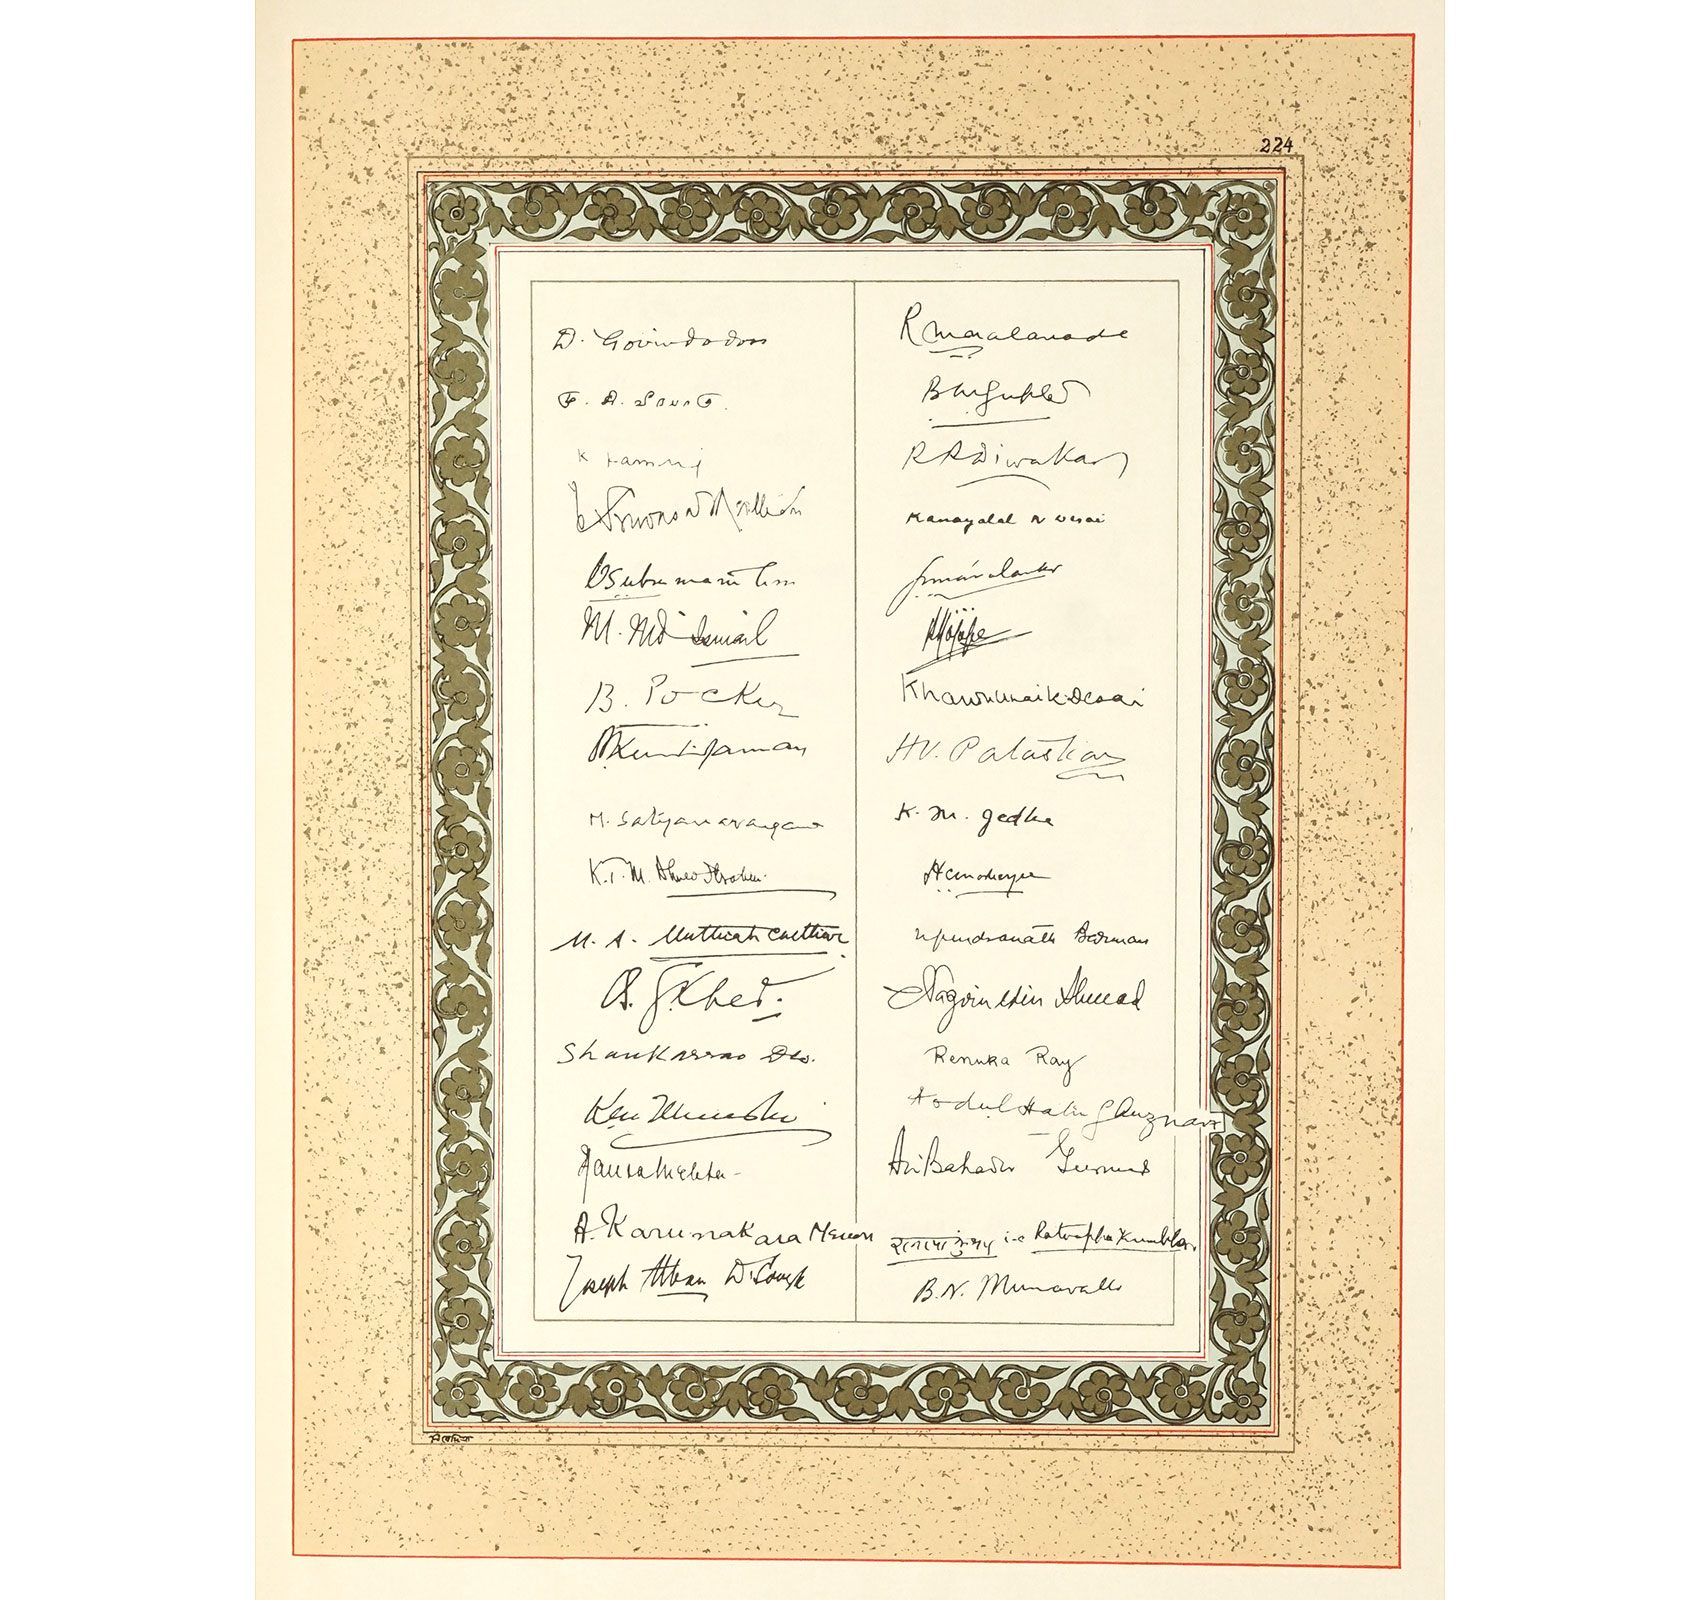 224
D. Govindadoss
M. Md Ismail
B. Pocker
M. Satyanarayana
K.T.M. Ahmed Ibrahim
M. A. Muthiah Chettiar
B. G. Kher.
Shankarrao Deo.
K M Munshi
Hansa Mehta
A. Karunakara Menon
Joseph Alban D'Souza
R M Nalavade
B M Gupte
R R Diwakar
Kanayalal N Desai
Khandubhai K Desai
H V. Pataskar
K. M. Jedhe
Upendranath Barman
Naziruddin Ahmad
Renuka Ray
Abdul Halim Ghuznavi
Ari Bahadur Gurung
रतनाप्पा कुंभार i.e Ratnappa Kumbhar
B. N. Munavalli